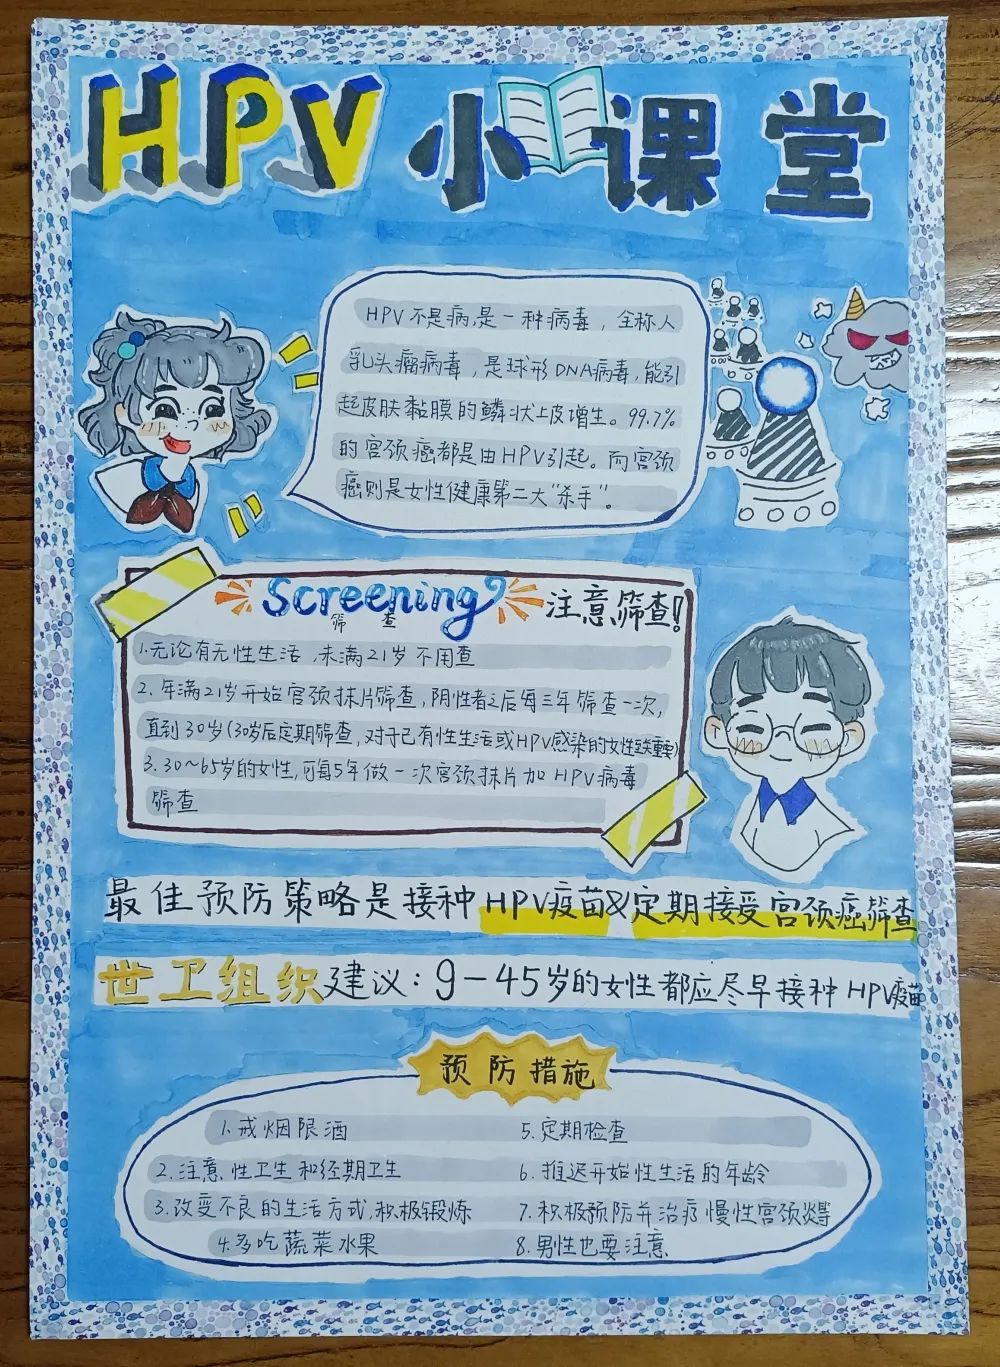 HPV 小课堂
HPV不是病,是一种病毒，全称人
乳头瘤病毒，是球形DNA病毒,能引
起皮肤黏膜的鳞状上皮增生。99.7%
的宫颈癌都是由HPV引起。而宫颈
癌则是女性健康第二大"杀手"。
Screening 注意筛查!
筛 查
1.无论有无性生活,未满21岁不用查
2.年满21岁开始宫颈抹片筛查,阴性者之后每三年筛查一次,
直到30岁(30岁后定期筛查,对于已有性生活或HPV感染的女性至关重要)
3.30~65岁的女性,可每5年做一次宫颈抹片加HPV病毒
筛查
最佳预防策略是接种HPV疫苗&定期接受宫颈癌筛查
世卫组织建议:9-45岁的女性都应尽早接种HPV疫苗
预防措施
1.戒烟限酒
2.注意性卫生和经期卫生
3.改变不良的生活方式,积极锻炼
4.多吃蔬菜水果
5.定期检查
6.推迟开始性生活的年龄
7.积极预防并治疗慢性宫颈炎等
8.男性也要注意